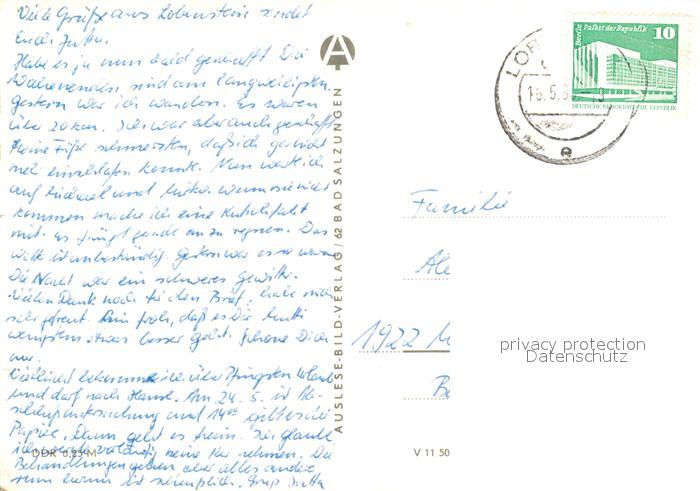 Viele Grüße aus Lobenstein sendet
Euch Jutta.
Habe es ja nun bald geschafft. Die
Wochenenden sind am langweiligsten.
Gestern war ich wandern. Es waren
über 20 km. Ich war aber auch geschafft.
Meine Füße schmerzten, daß ich gar nicht
einschlafen konnte. Nun warte ich
auf Michael und Mirko. Wenn sie nicht
kommen mache ich eine Kutschfahrt
mit. Es fängt gerade an zu regnen. Das
ist unbeständig. Gestern war es so warm.
Die Nacht war ein schweres Gewitter.
Vielen Dank noch für den Brief, habe mich
sehr gefreut. Bin froh, daß es Dir Mutti
wenigstens etwas besser geht. Schone Dich
nur.
Vielleicht bekomme ich über Pfingsten Urlaub
und darf nach Hause. Am 24. 5. ist Ab-
schlußuntersuchung und 14⁰⁰ gibt es die
Papiere. Dann geht es heim. Ich glaube
ich werde vorläufig keine Kur nehmen. Die
Behandlungen gehen aber alles andere
Gruß Jutta
DDR 0,25 M
AUSLESE-BILD-VERLAG / 62 BAD SALZUNGEN
V 11 50
Berlin Palast der Republik 10
DEUTSCHE DEMOKRATISCHE REPUBLIK
LOB
16.5.8
e
Familie
Ale
1922 M
B
privacy protection
Datenschutz